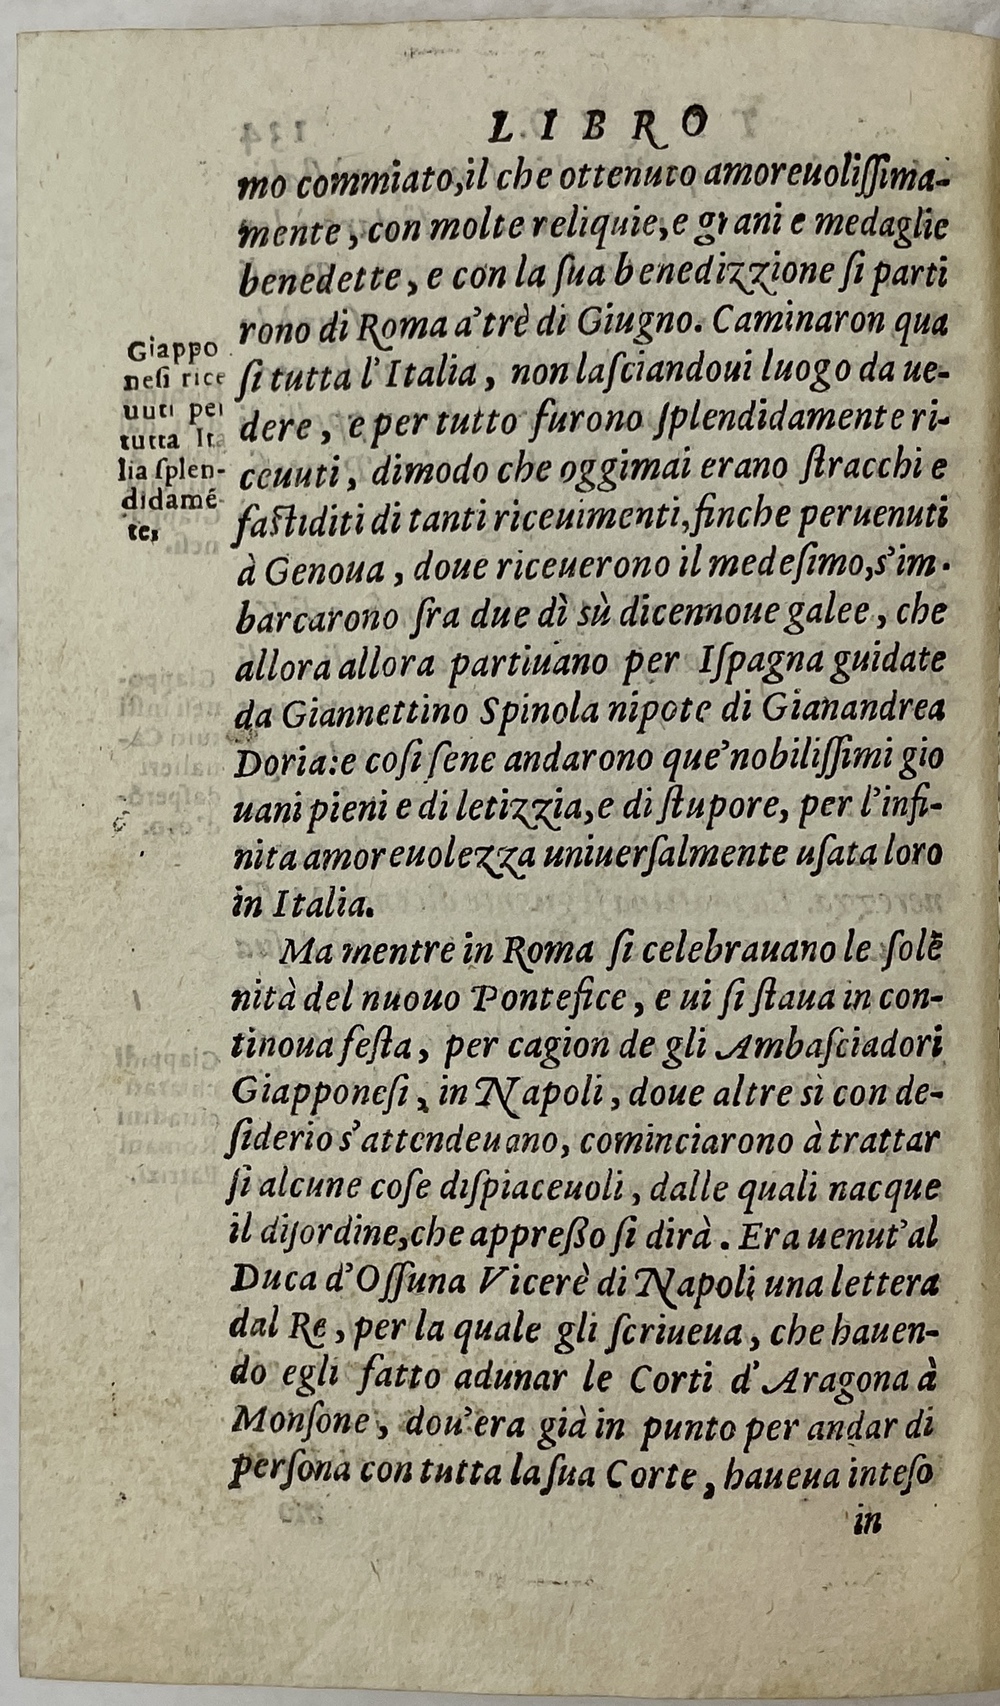 LIBRO
mo commiato, il che ottenuto amoreuoliſſima-
mente, con molte reliquie, e grani e medaglie
benedette, e con la ſua benedizzione ſi parti
rono di Roma a'trè di Giugno. Caminaron qua
ſi tutta l'Italia, non laſciandoui luogo da ue-
dere, e per tutto furono ſplendidamente ri-
ceuuti, dimodo che oggimai erano ſtracchi e
faſtiditi di tanti riceuimenti, finche peruenuti
à Genoua, doue riceuerono il medeſimo, s'im-
barcarono fra due dì sù dicennoue galee, che
allora allora partiuano per Iſpagna guidate
da Giannettino Spinola nipote di Gianandrea
Doria: e coſi ſene andarono que'nobiliſſimi gio
uani pieni e di letizzia, e di ſtupore, per l'infi-
nita amoreuolezza uniuerſalmente uſata loro
in Italia.
Ma mentre in Roma ſi celebrauano le ſolē
nità del nuouo Pontefice, e ui ſi ſtaua in con-
tinoua feſta, per cagion de gli Ambaſciadori
Giapponeſi, in Napoli, doue altre sì con de-
ſiderio s'attendeuano, cominciarono à trattar
ſi alcune coſe diſpiaceuoli, dalle quali nacque
il diſordine, che appreßo ſi dirà. Era uenut'al
Duca d'Oſſuna Vicerè di Napoli una lettera
dal Re, per la quale gli ſcriueua, che hauen-
do egli fatto adunar le Corti d'Aragona à
Monſone, dou'era già in punto per andar di
perſona con tutta la ſua Corte, haueua inteſo
in
Giappo
neſi rice
uuti per
tutta Ita
lia ſplen-
didamé-
te,